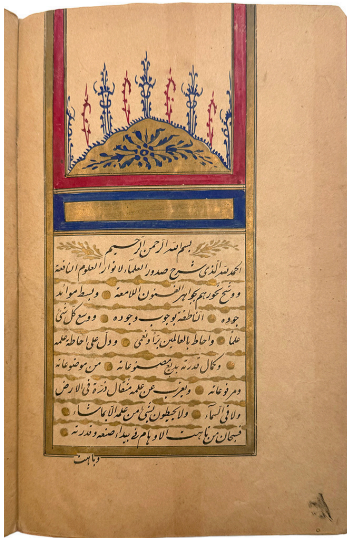 بسم الله الرحمن الرحيم
الحمد لله الذى شرح صدور العلماء لانوار العلوم النافعة
ووشح نحورهم بجواهر الفنون اللامعة وبسط موائد
جوده الناطقة بوجوب وجوده ووسع كل شئ
علما واحاط بالعالمين ودل على احاطة علمه
وكمال قدرته بدايع مصنوعاته من موضوعاته
ومرفوعاته ولا يعزب عن علمه مثقال ذرة فى الارض
ولا فى السماء ولا يحيطون بشئ من علمه الا بما شاء
فسبحان من تاهت الاوهام فى بيداء صنعه وقدرته